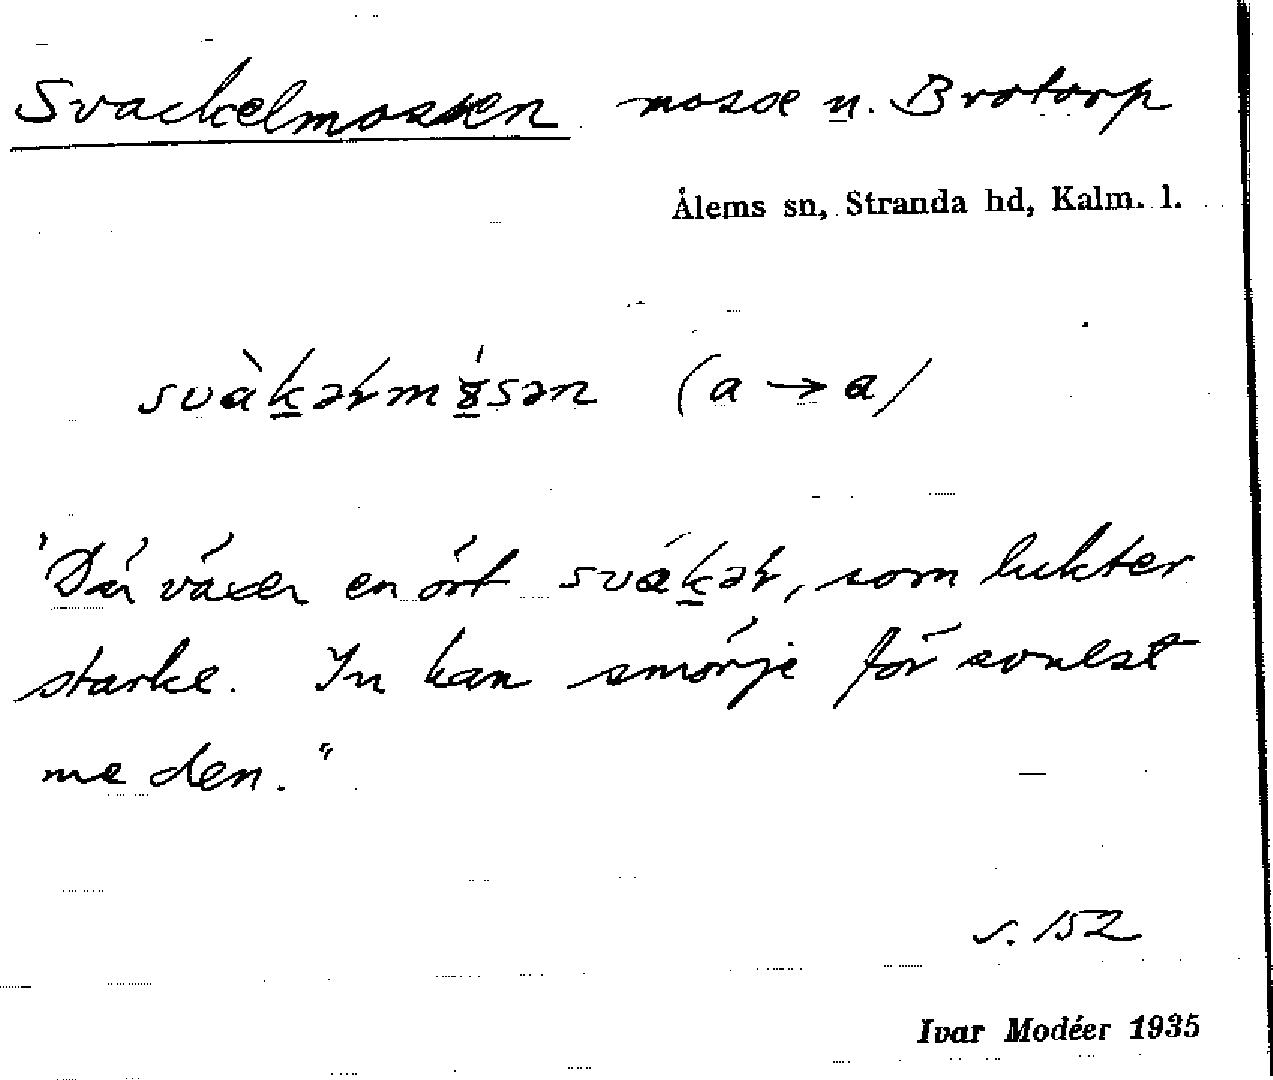 Svackelmossen mosse n. Brotorp
Ålems sn, Stranda hd, Kalm. l.
(a → a)
"Där växer en ört , som lukter
starke. In kan smörje för svulst
me den."
s. 152
Ivar Modéer 1935